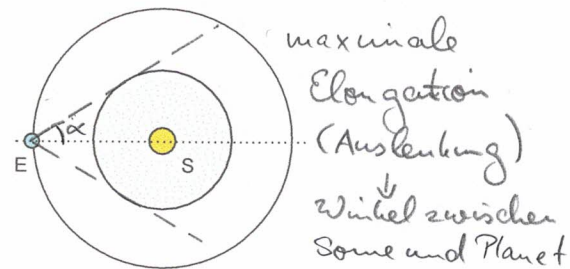 maximale
Elongation
(Auslenkung)
↓
Winkel zwischen
Sonne und Planet
α
E
S